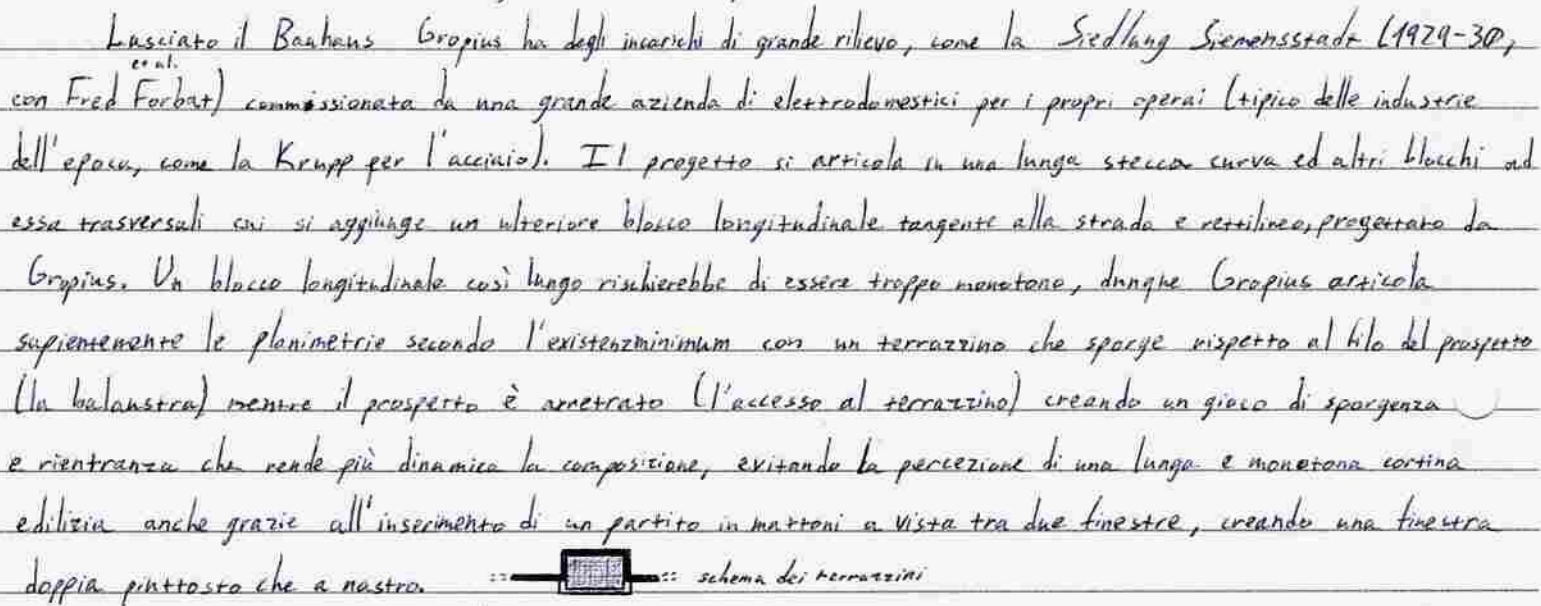 Lasciato il Bauhaus Gropius ha degli incarichi di grande rilievo, come la Siedlung Siemensstadt (1929-30,
et al.
con Fred Forbat) commissionata da una grande azienda di elettrodomestici per i propri operai (tipico delle industrie
dell'epoca, come la Krupp per l'acciaio). Il progetto si articola in una lunga stecca curva ed altri blocchi ad
essa trasversali cui si aggiunge un ulteriore blocco longitudinale tangente alla strada e rettilineo, progettato da
Gropius. Un blocco longitudinale così lungo rischierebbe di essere troppo monotono, dunque Gropius articola
sapientemente le planimetrie secondo l'existenzminimum con un terrazzino che sporge rispetto al filo del prospetto
(la balaustra) mentre il prospetto è arretrato (l'accesso al terrazzino) creando un gioco di sporgenza
e rientranza che rende più dinamica la composizione, evitando la percezione di una lunga e monotona cortina
edilizia anche grazie all'inserimento di un partito in mattoni a vista tra due finestre, creando una finestra
doppia piuttosto che a nastro.
schema dei terrazzini